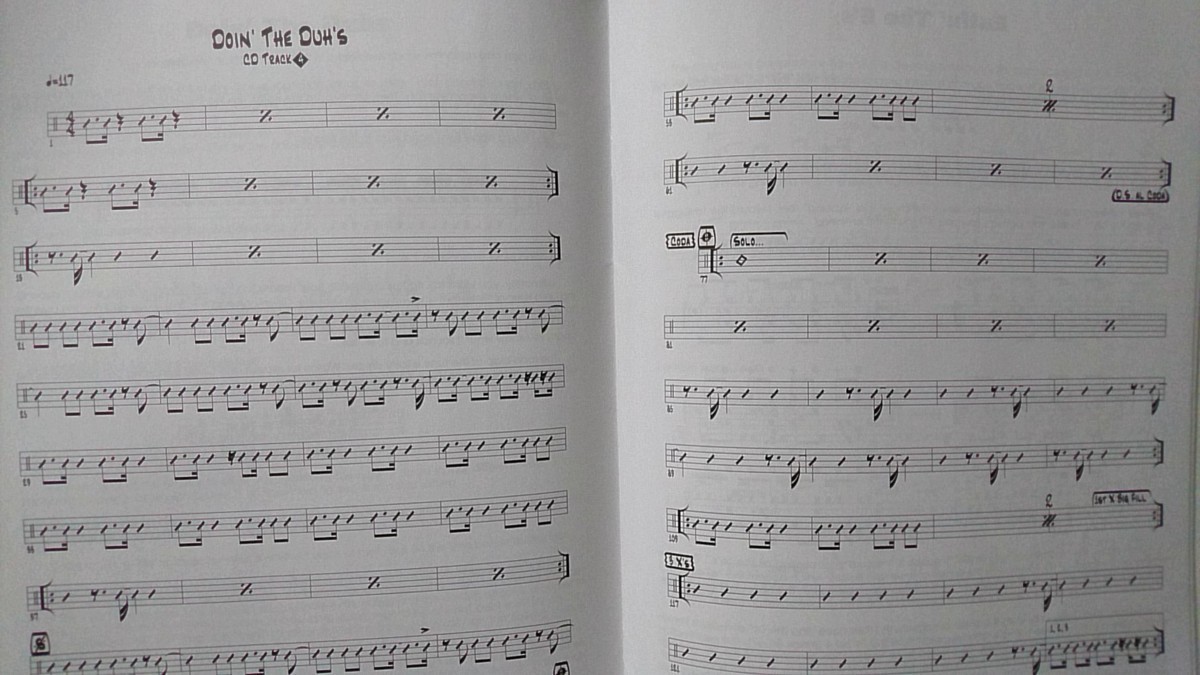 DOIN' THE DUH'S
CD TRACK 4
♩=117
4
4
1
5
13
21
25
29
33
37
2
(D.S. AL CODA)
CODA
SOLO...
77
81
85
2
1ST X BIG FILL
109
3 X'S
117